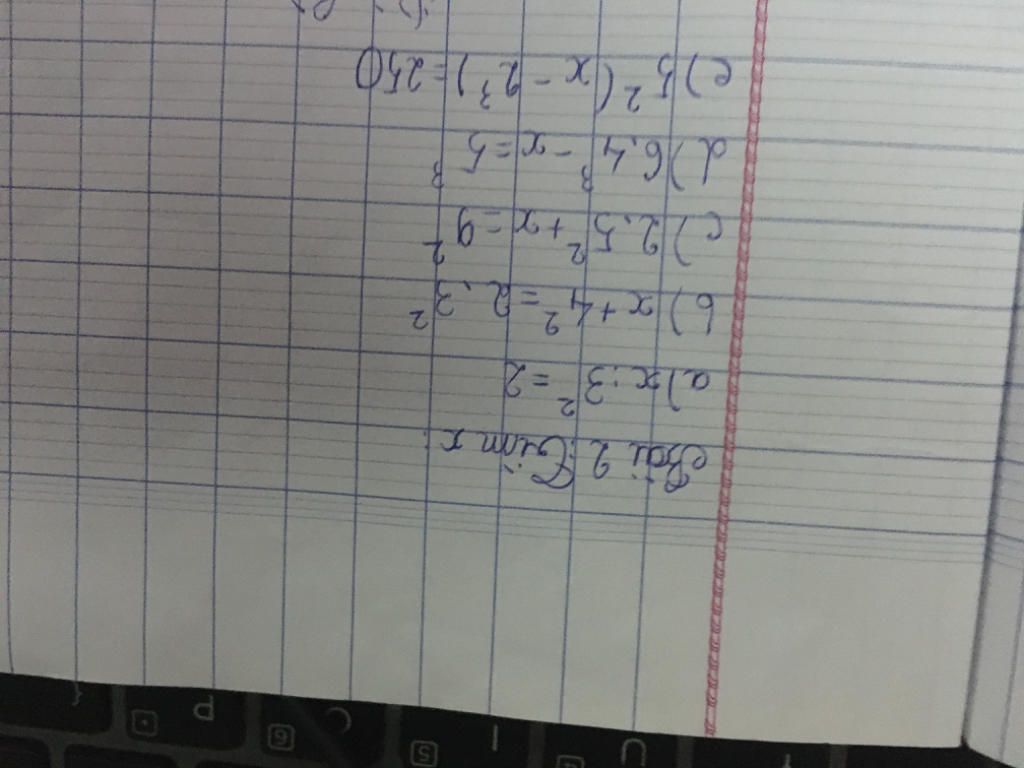 Bài 2 Tìm x:
a) x : 3² = 2
b) x + 4² = 2.3²
c) 2.5² + x = 9²
d) 6.4³ - x = 5³
e) 5² (x - 2³) = 250